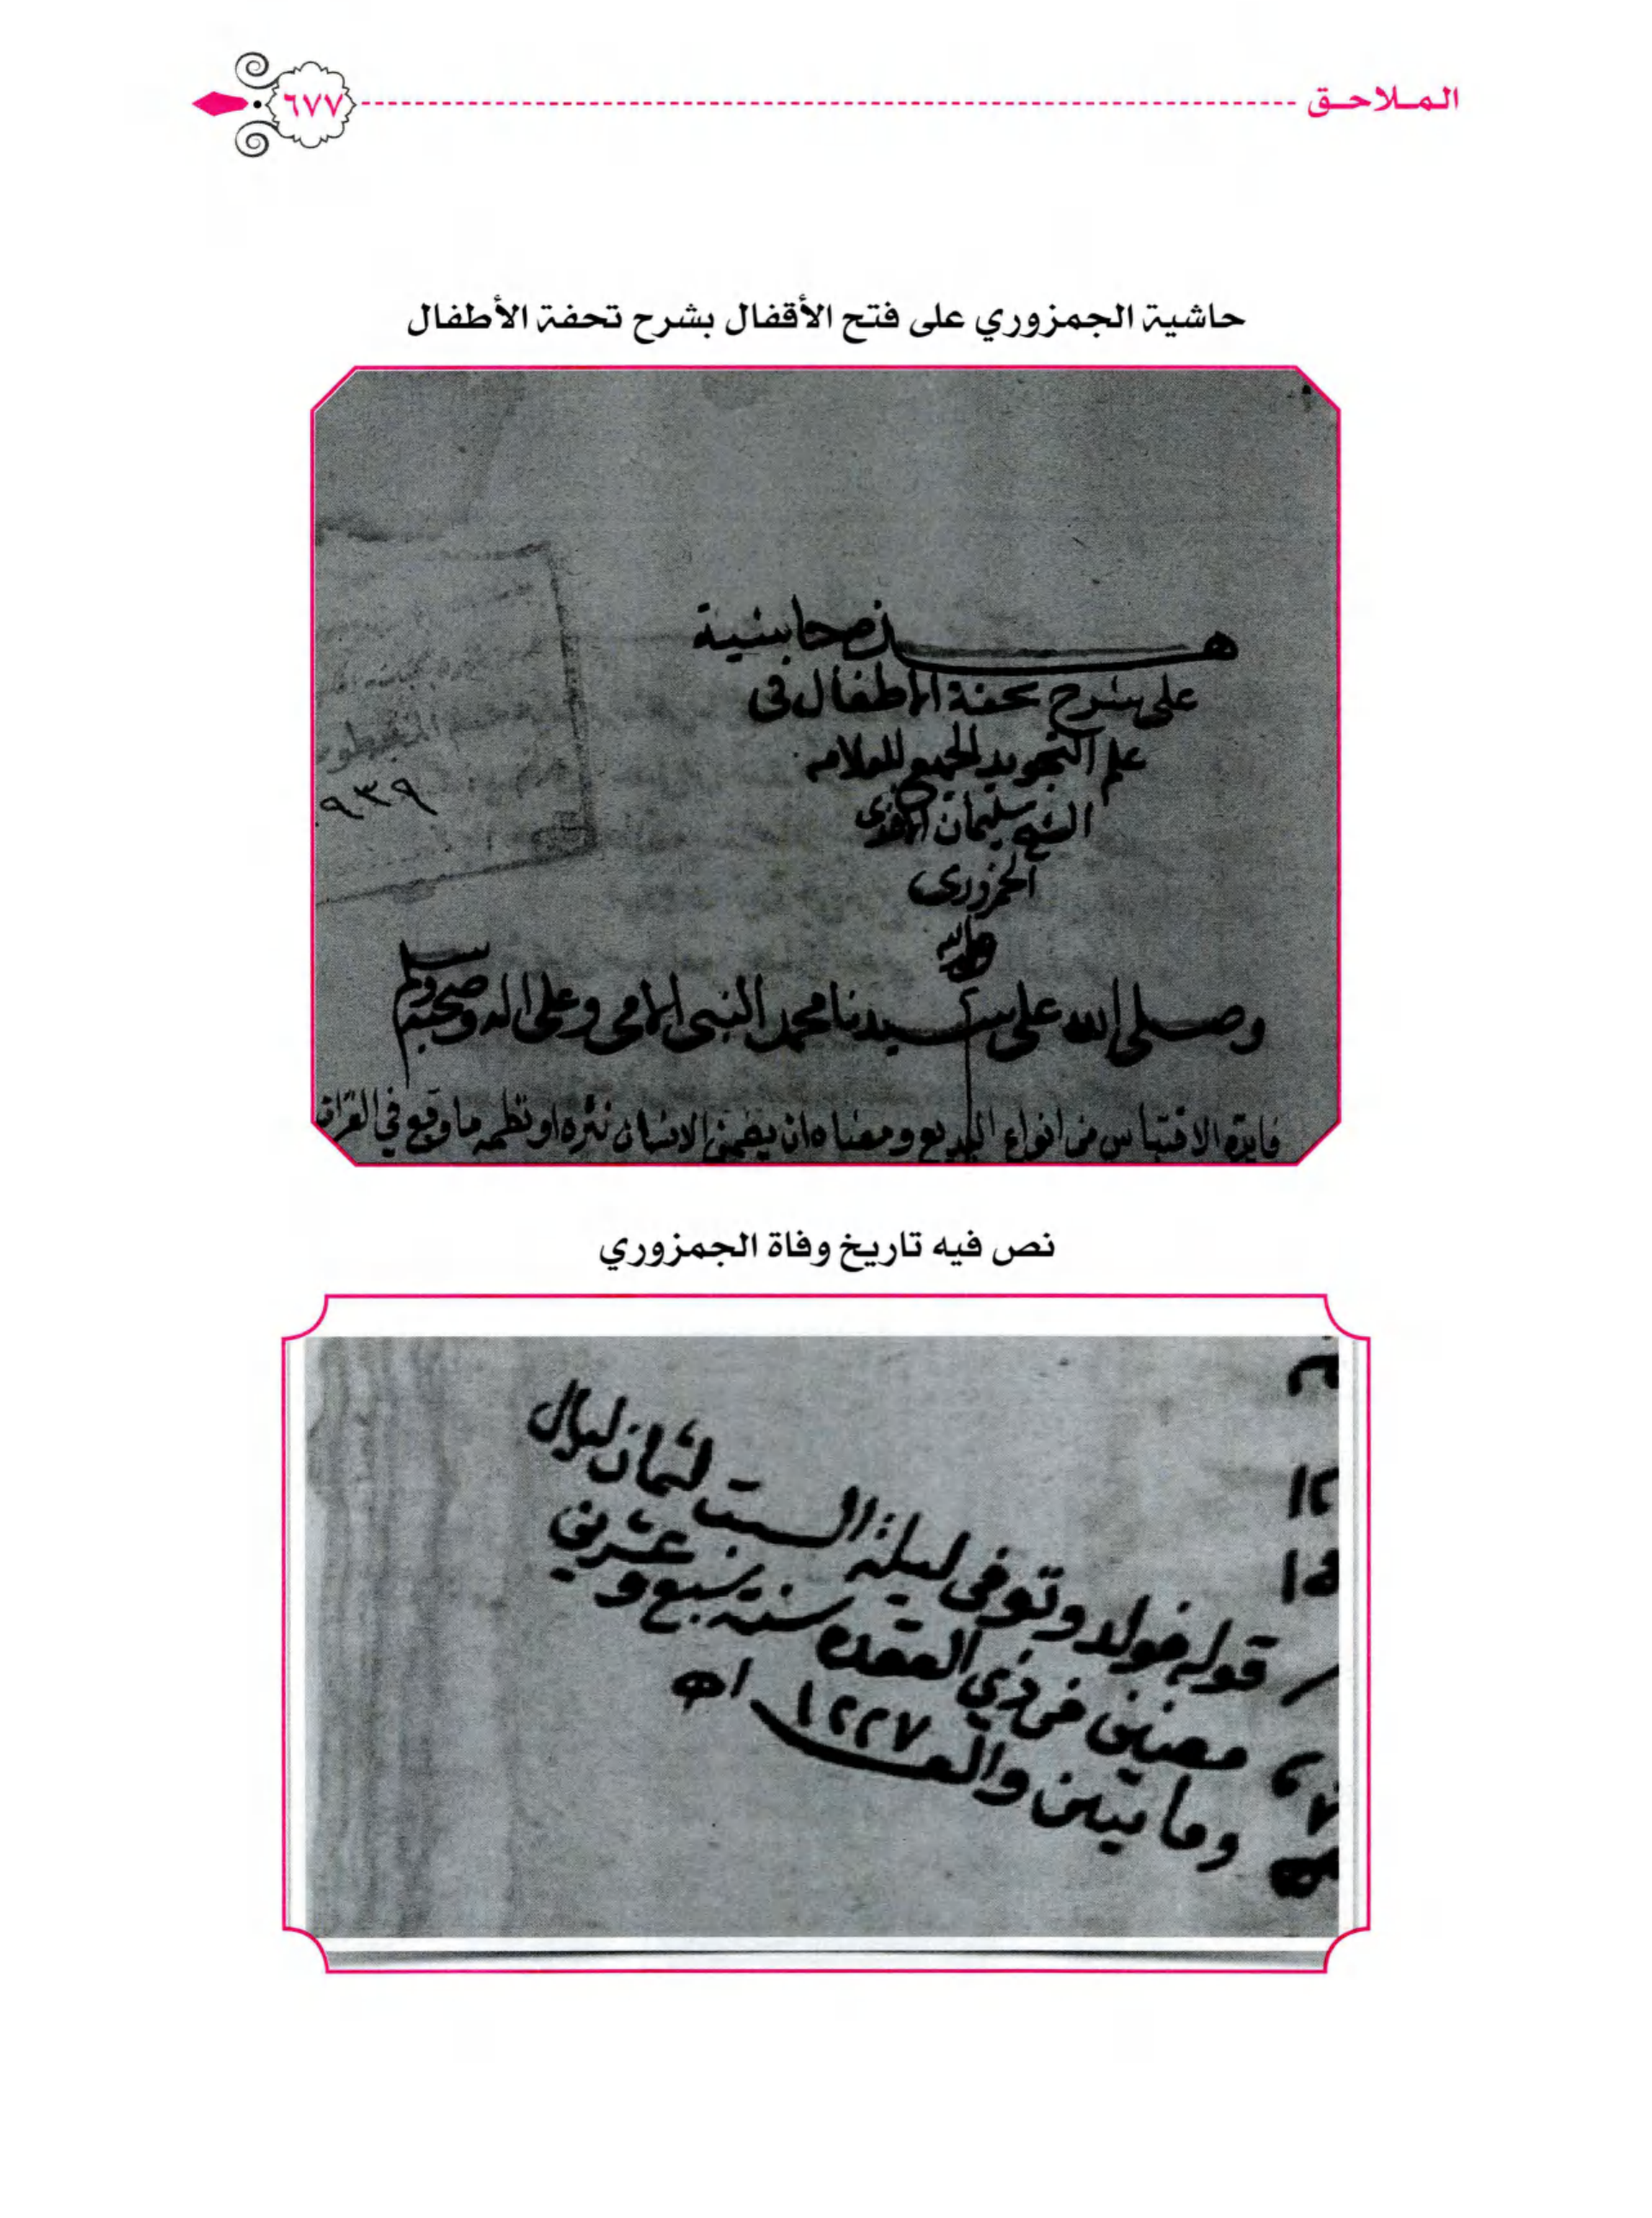 الملاحق
٦٧٧
حاشية الجمزوري على فتح الأقفال بشرح تحفة الأطفال
هذه حاشية
على شرح تحفة الاطفال فى
علم التجويد للعلامه
الشيخ سليمان
الجمزورى
وصلى الله على سيدنا محمد النبى الامى وعلى اله وصحبه وسلم
فايدة الاقتباس من انواع البديع ومعناه ان يضمن الانسان نثره او نظمه ما وقع في القران
٩٣٩
نص فيه تاريخ وفاة الجمزوري
قوله فولد وتوفى ليلة السبت لثمان ليال
مضين فى ذي القعده سنة سبع وعشرين
ومايتين والف ١٢٢٧ اه